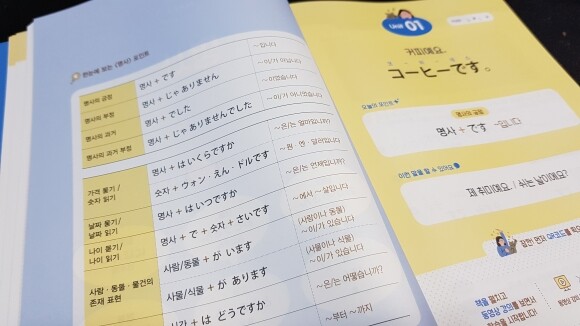 한눈에 보는 〈명사〉 포인트
명사의 긍정 명사 + です ~입니다
명사의 부정 명사 + じゃありません ~이/가 아닙니다
명사의 과거 명사 + でした ~이었습니다
명사의 과거 부정 명사 + じゃありませんでした ~이/가 아니었습니다
가격 묻기 / 숫자 읽기 명사 + はいくらですか ~은/는 얼마입니까?
숫자 + ウォン・えん・ドルです ~원・엔・달러입니다
날짜 묻기 / 날짜 읽기 명사 + はいつですか ~은/는 언제입니까?
나이 묻기 / 나이 읽기 명사 + で + 숫자 + さいです ~에서 ~살입니다
사람・동물・물건의 존재 표현 사람/동물 + が います (사람이나 동물) ~이/가 있습니다
사물/식물 + が あります (사물이나 식물) ~이/가 있습니다
시간 + は どうですか ~은/는 어떻습니까?
~부터 ~까지
Unit 01
커피예요.
コーヒーです。
오늘의 포인트
명사의 긍정
명사 + です ~입니다
이런 말을 할 수 있어요
제 취미예요. / 쉬는 날이에요?
먼저 QR코드를
책을 펼치고
동영상 강의를 보면서